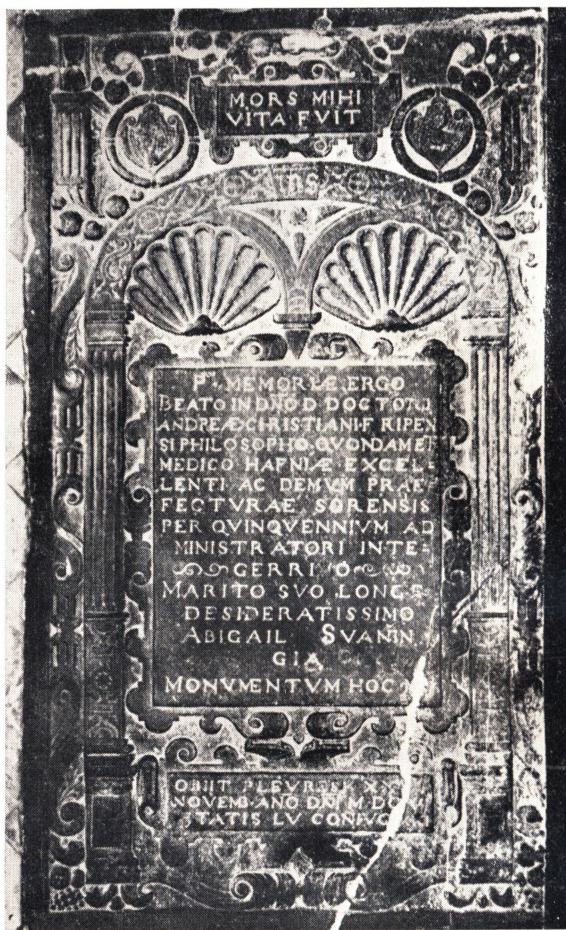 MORS MIHI
VITA FVIT
IHS
MEMORIÆ ERGO
BEATO IN DNO D DOCTORI
ANDREÆ CHRISTIANI F RIPEN
SI PHILOSOPHO QVONDAM ET
MEDICO HAFNIÆ EXCEL-
LENTI AC DEMVM PRAE-
FECTVRAE SORENSIS
PER QVINQVENNIVM AD
MINISTRATORI INTE-
GERRIMO
MARITO SVO LONGE
DESIDERATISSIMO
ABIGAIL SVANIN
GIA
MONVMENTVM HOC
OBIIT PLEVRISI
NOVEMB ANO DNI
TATIS LV CONIVG